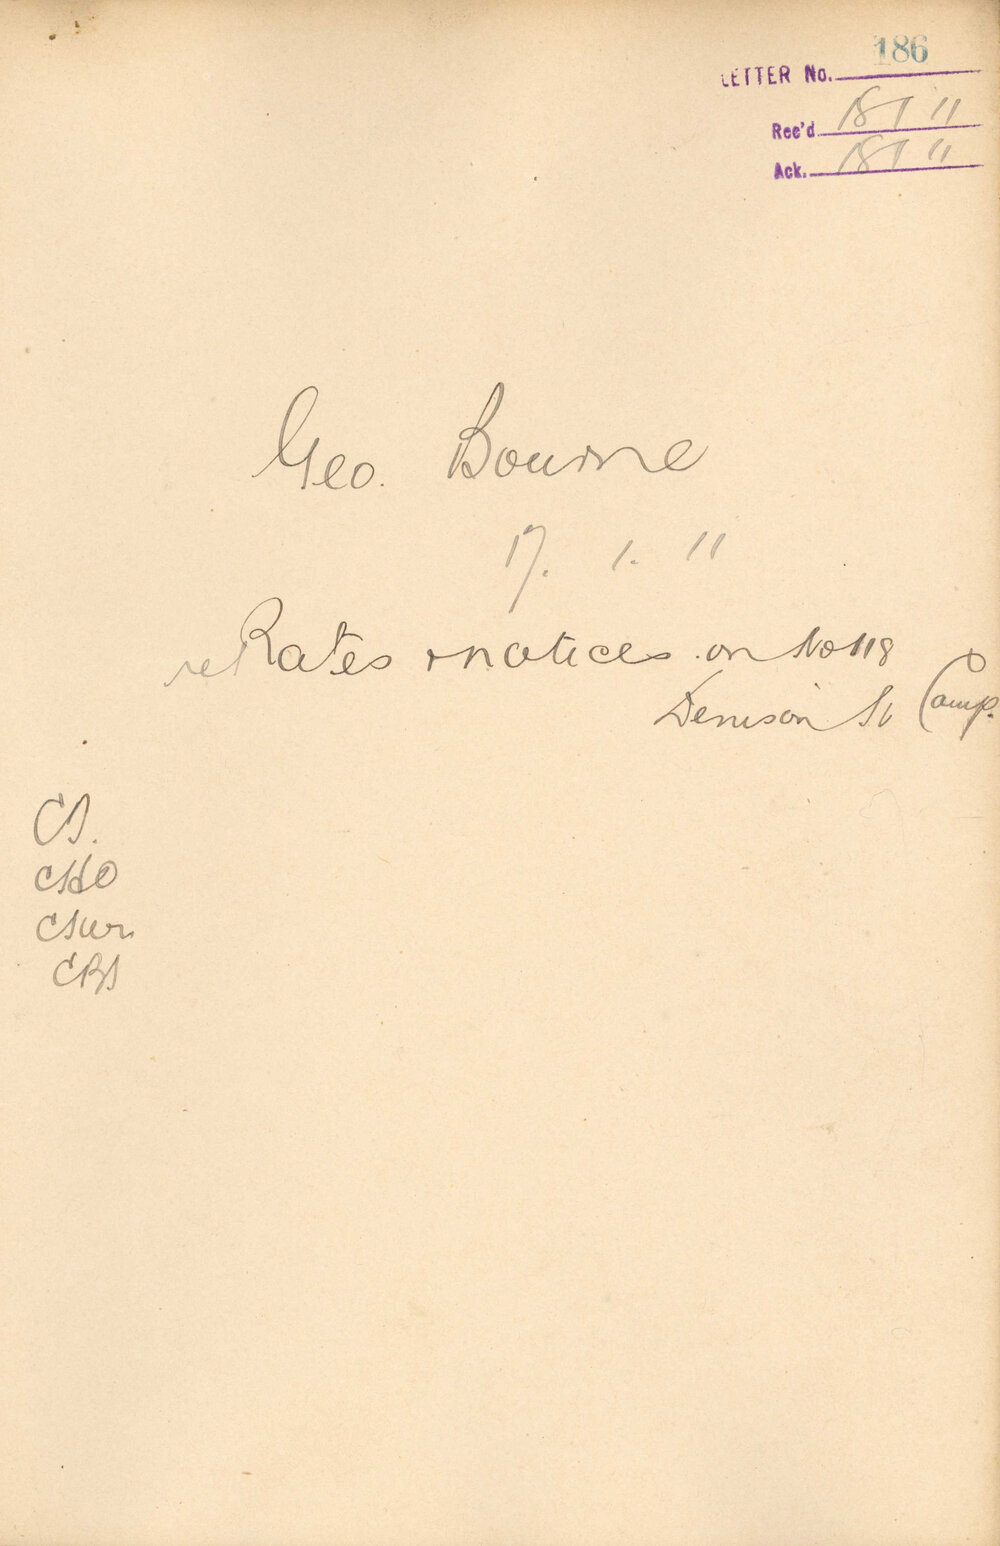 186
LETTER No.
Rec'd 18 1 11
Ack. 18 1 11
Geo. Bourne
17. 1. 11
re Rates & notices on No 118
Denison St Camp.
CS.
CHO
CSur.
CBS